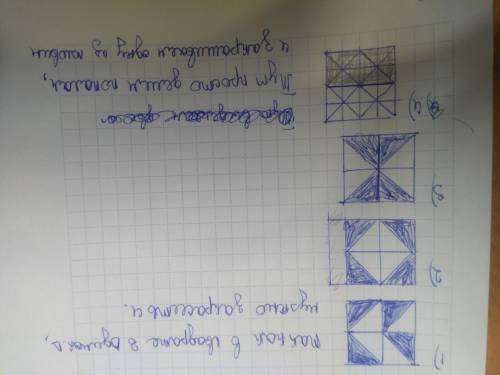 1) так как в квадрате 8 одинак. Δ,
нужно закрасить 4.
2)
3)
4)
Тут просто делим пополам,
и закрашиваем одну из половин